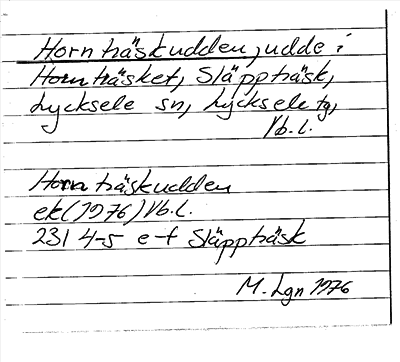 Hornträskudden, udde i
Hornträsket, Släppträsk,
Lycksele sn, Lycksele tg,
Vb.l.
Hornträskudden
ek (1976) Vb.l.
231 4-5 e-f Släppträsk
M. Lgn 1976